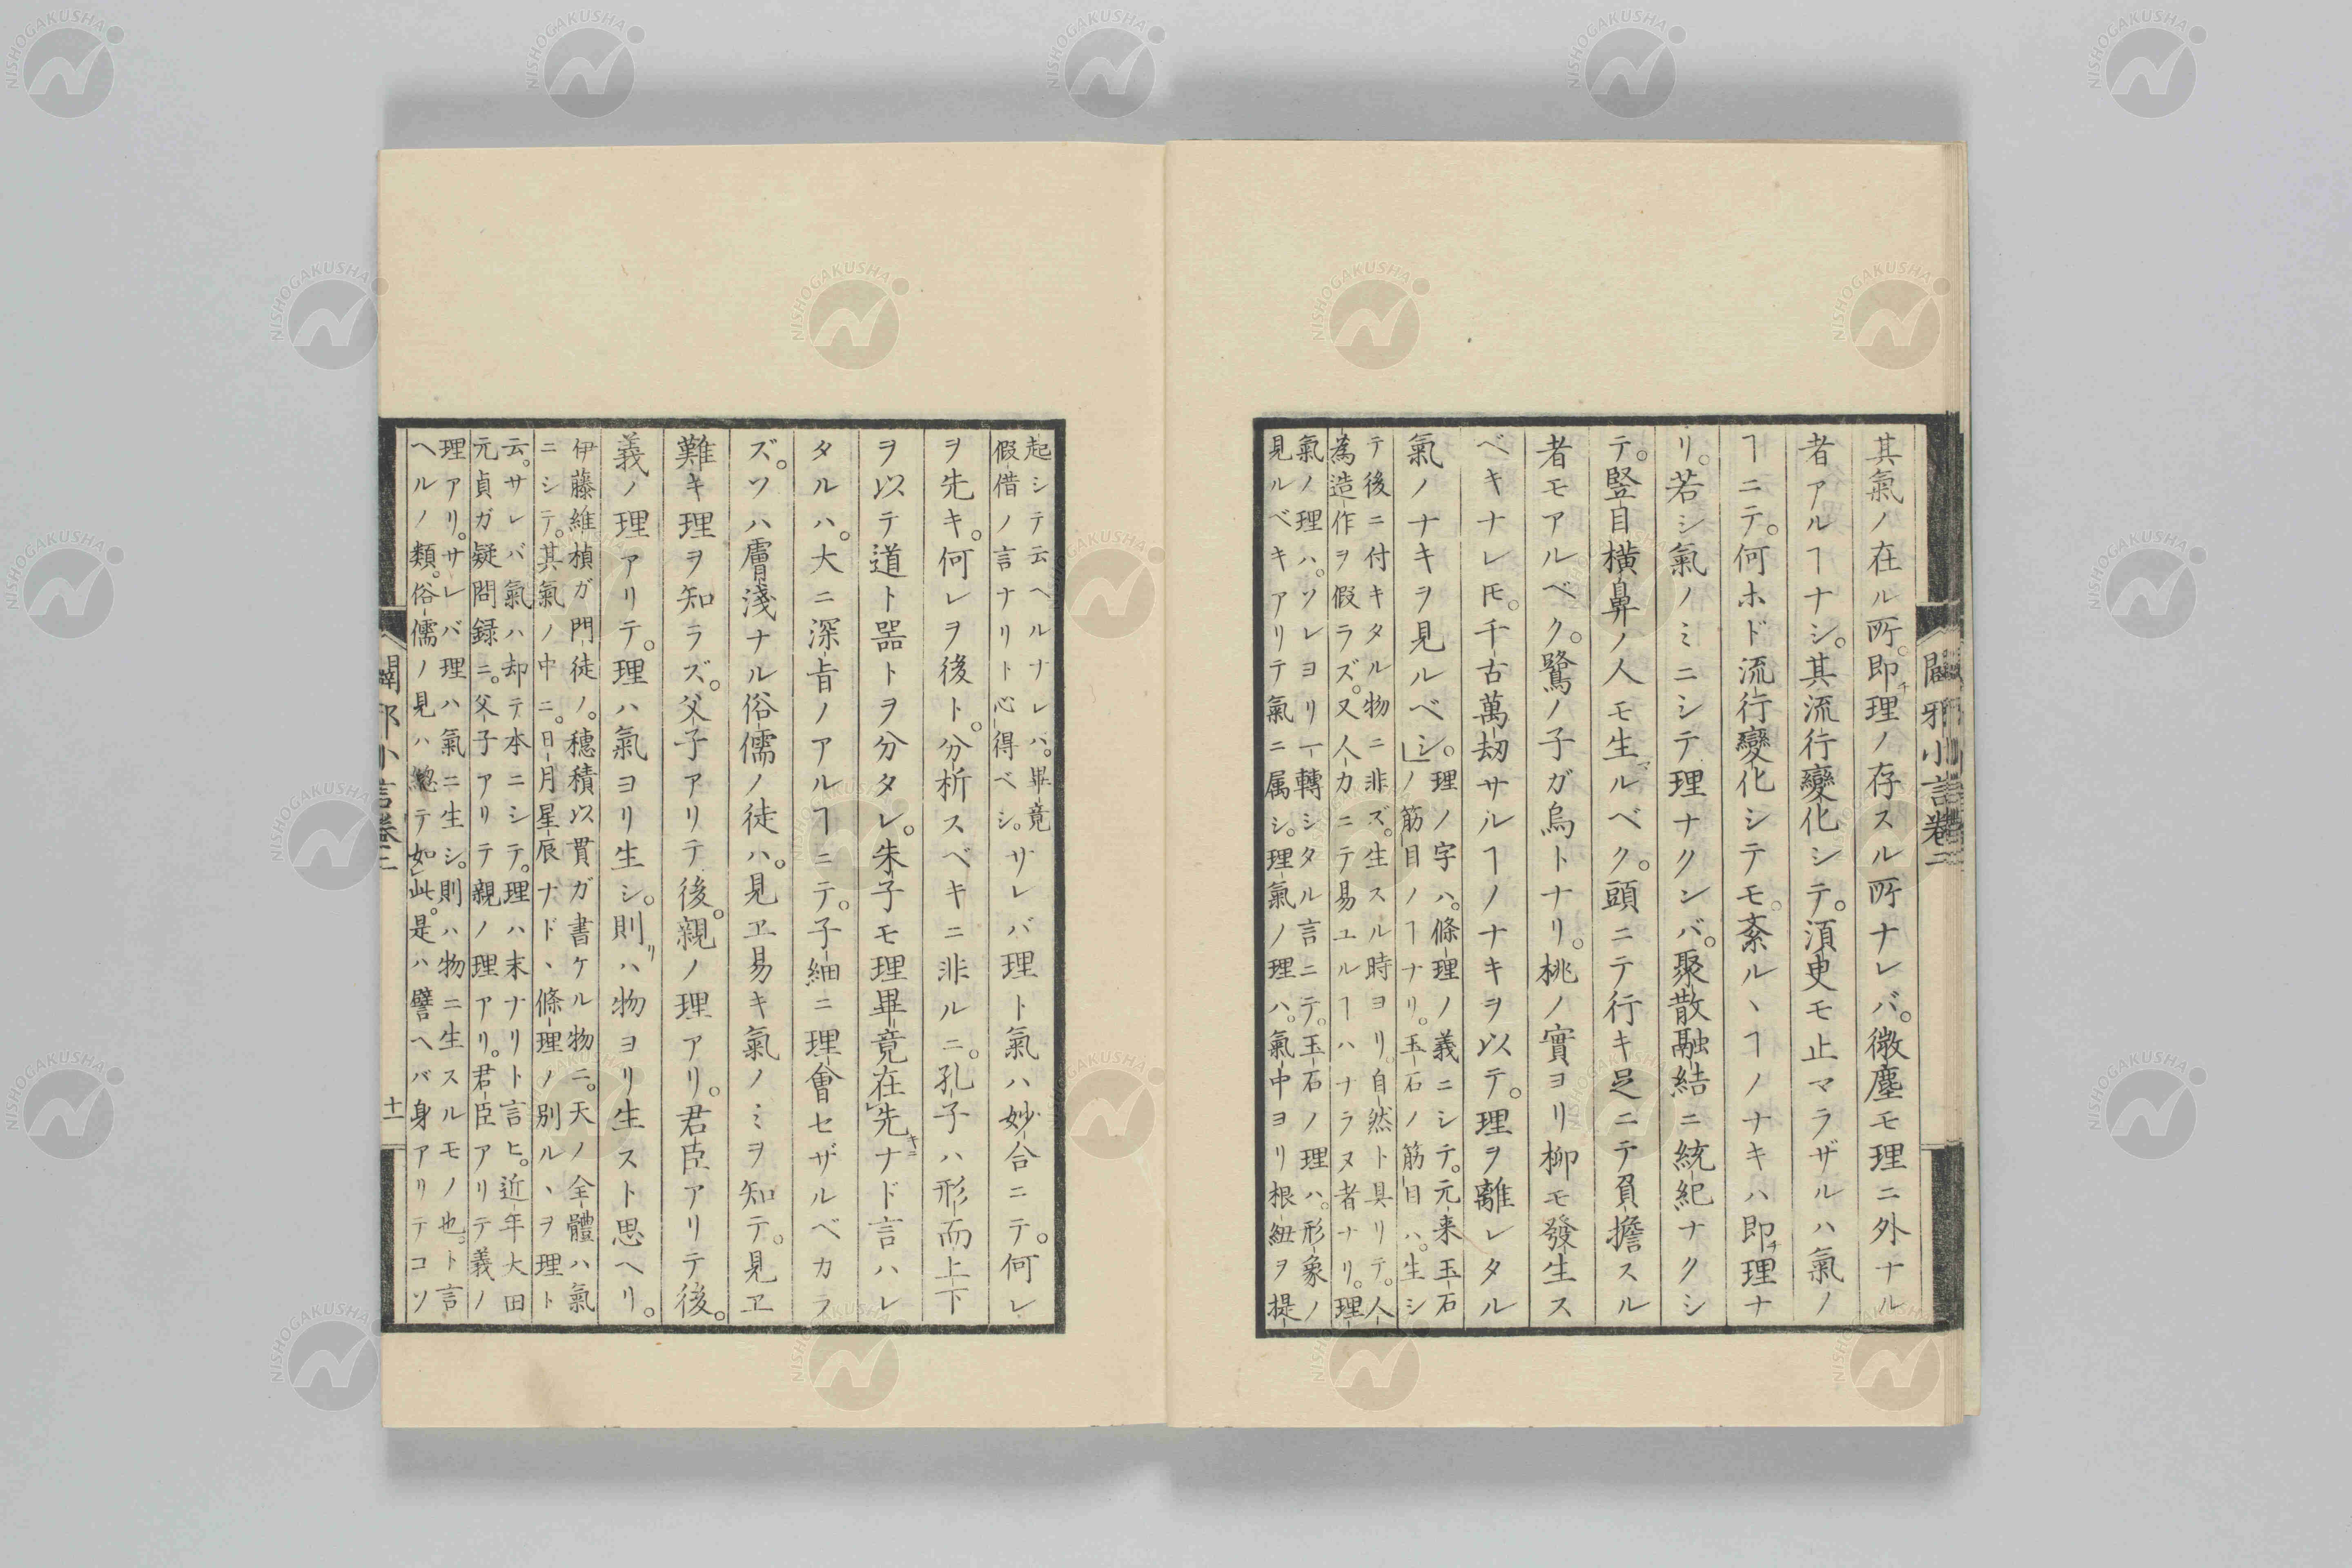 其氣ノ在ル所。即チ理ノ存スル所ナレバ。微塵モ理ニ外ナル
者アルヿナシ。其流行變化シテ。須臾モ止マラザルハ氣ノ
ヿニテ。何ホド流行變化シテモ。紊ルヽヿノナキハ即チ理ナ
リ。若シ氣ノミニシテ理ナクンバ。聚散融結ニ統紀ナクシ
テ。竪目橫鼻ノ人モ生ズルベク。頭ニテ行キ足ニテ負擔スル
者モアルベク。鷺ノ子ガ烏トナリ。桃ノ實ヨリ柳モ發生ス
ベキナレ𪜈。千古萬劫サルヿノナキヲ以テ。理ヲ離レタル
氣ノナキヲ見ルベシ。
理ノ字ハ。條理ノ義ニシテ。元来玉石
ノ筋目ノヿナリ。玉石ノ筋目ハ。生シ
テ後ニ付キタル物ニ非ズ。生スル時ヨリ。自然ト具リテ。人
為造作ヲ假ラズ。又人力ニテ易ユルヿハナラヌ者ナリ。理
氣ノ理ハ。ソレヨリ一轉シタル言ニテ。玉石ノ理ハ。形象ノ
見ルベキアリテ氣ニ属シ。理氣ノ理ハ。氣中ヨリ根紐ヲ提
闢邪小言卷二
起シテ云ヘルナレバ。畢竟
假借ノ言ナリト心得ベシ。
サレバ理ト氣ハ妙合ニテ。何レ
ヲ先キ。何レヲ後ト。分析スベキニ非ルニ。孔子ハ形而上下
ヲ以テ道ト噐トヲ分タレ。朱子モ理畢竟在先キニナド言ハレ
タルハ。大ニ深旨ノアルヿニテ。子細ニ理會セザルベカラ
ズ。ソハ膚淺ナル俗儒ノ徒ハ。見ヱ易キ氣ノミヲ知テ。見ヱ
難キ理ヲ知ラズ。父子アリテ後。親ノ理アリ。君臣アリテ後。
義ノ理アリテ。理ハ氣ヨリ生シ。則リハ物ヨリ生スト思ヘリ。
伊藤維楨ガ門徒ノ。穗積以貫ガ書ケル物ニ。天ノ全體ハ氣
ニシテ。其氣ノ中ニ。日月星辰ナド、條理ノ別ルヽヲ理ト
云。サレバ氣ハ却テ本ニシテ。理ハ末ナリト言ヒ。近年大田
元貞ガ疑問録ニ。父子アリテ親ノ理アリ。君臣アリテ義ノ
理アリ。サレバ理ハ氣ニ生シ。則ハ物ニ生スルモノ也。ト言
ヘルノ類。俗儒ノ見ハ總テ如此。是ハ譬ヘバ身アリテコソ
闢邪小言卷二
十一